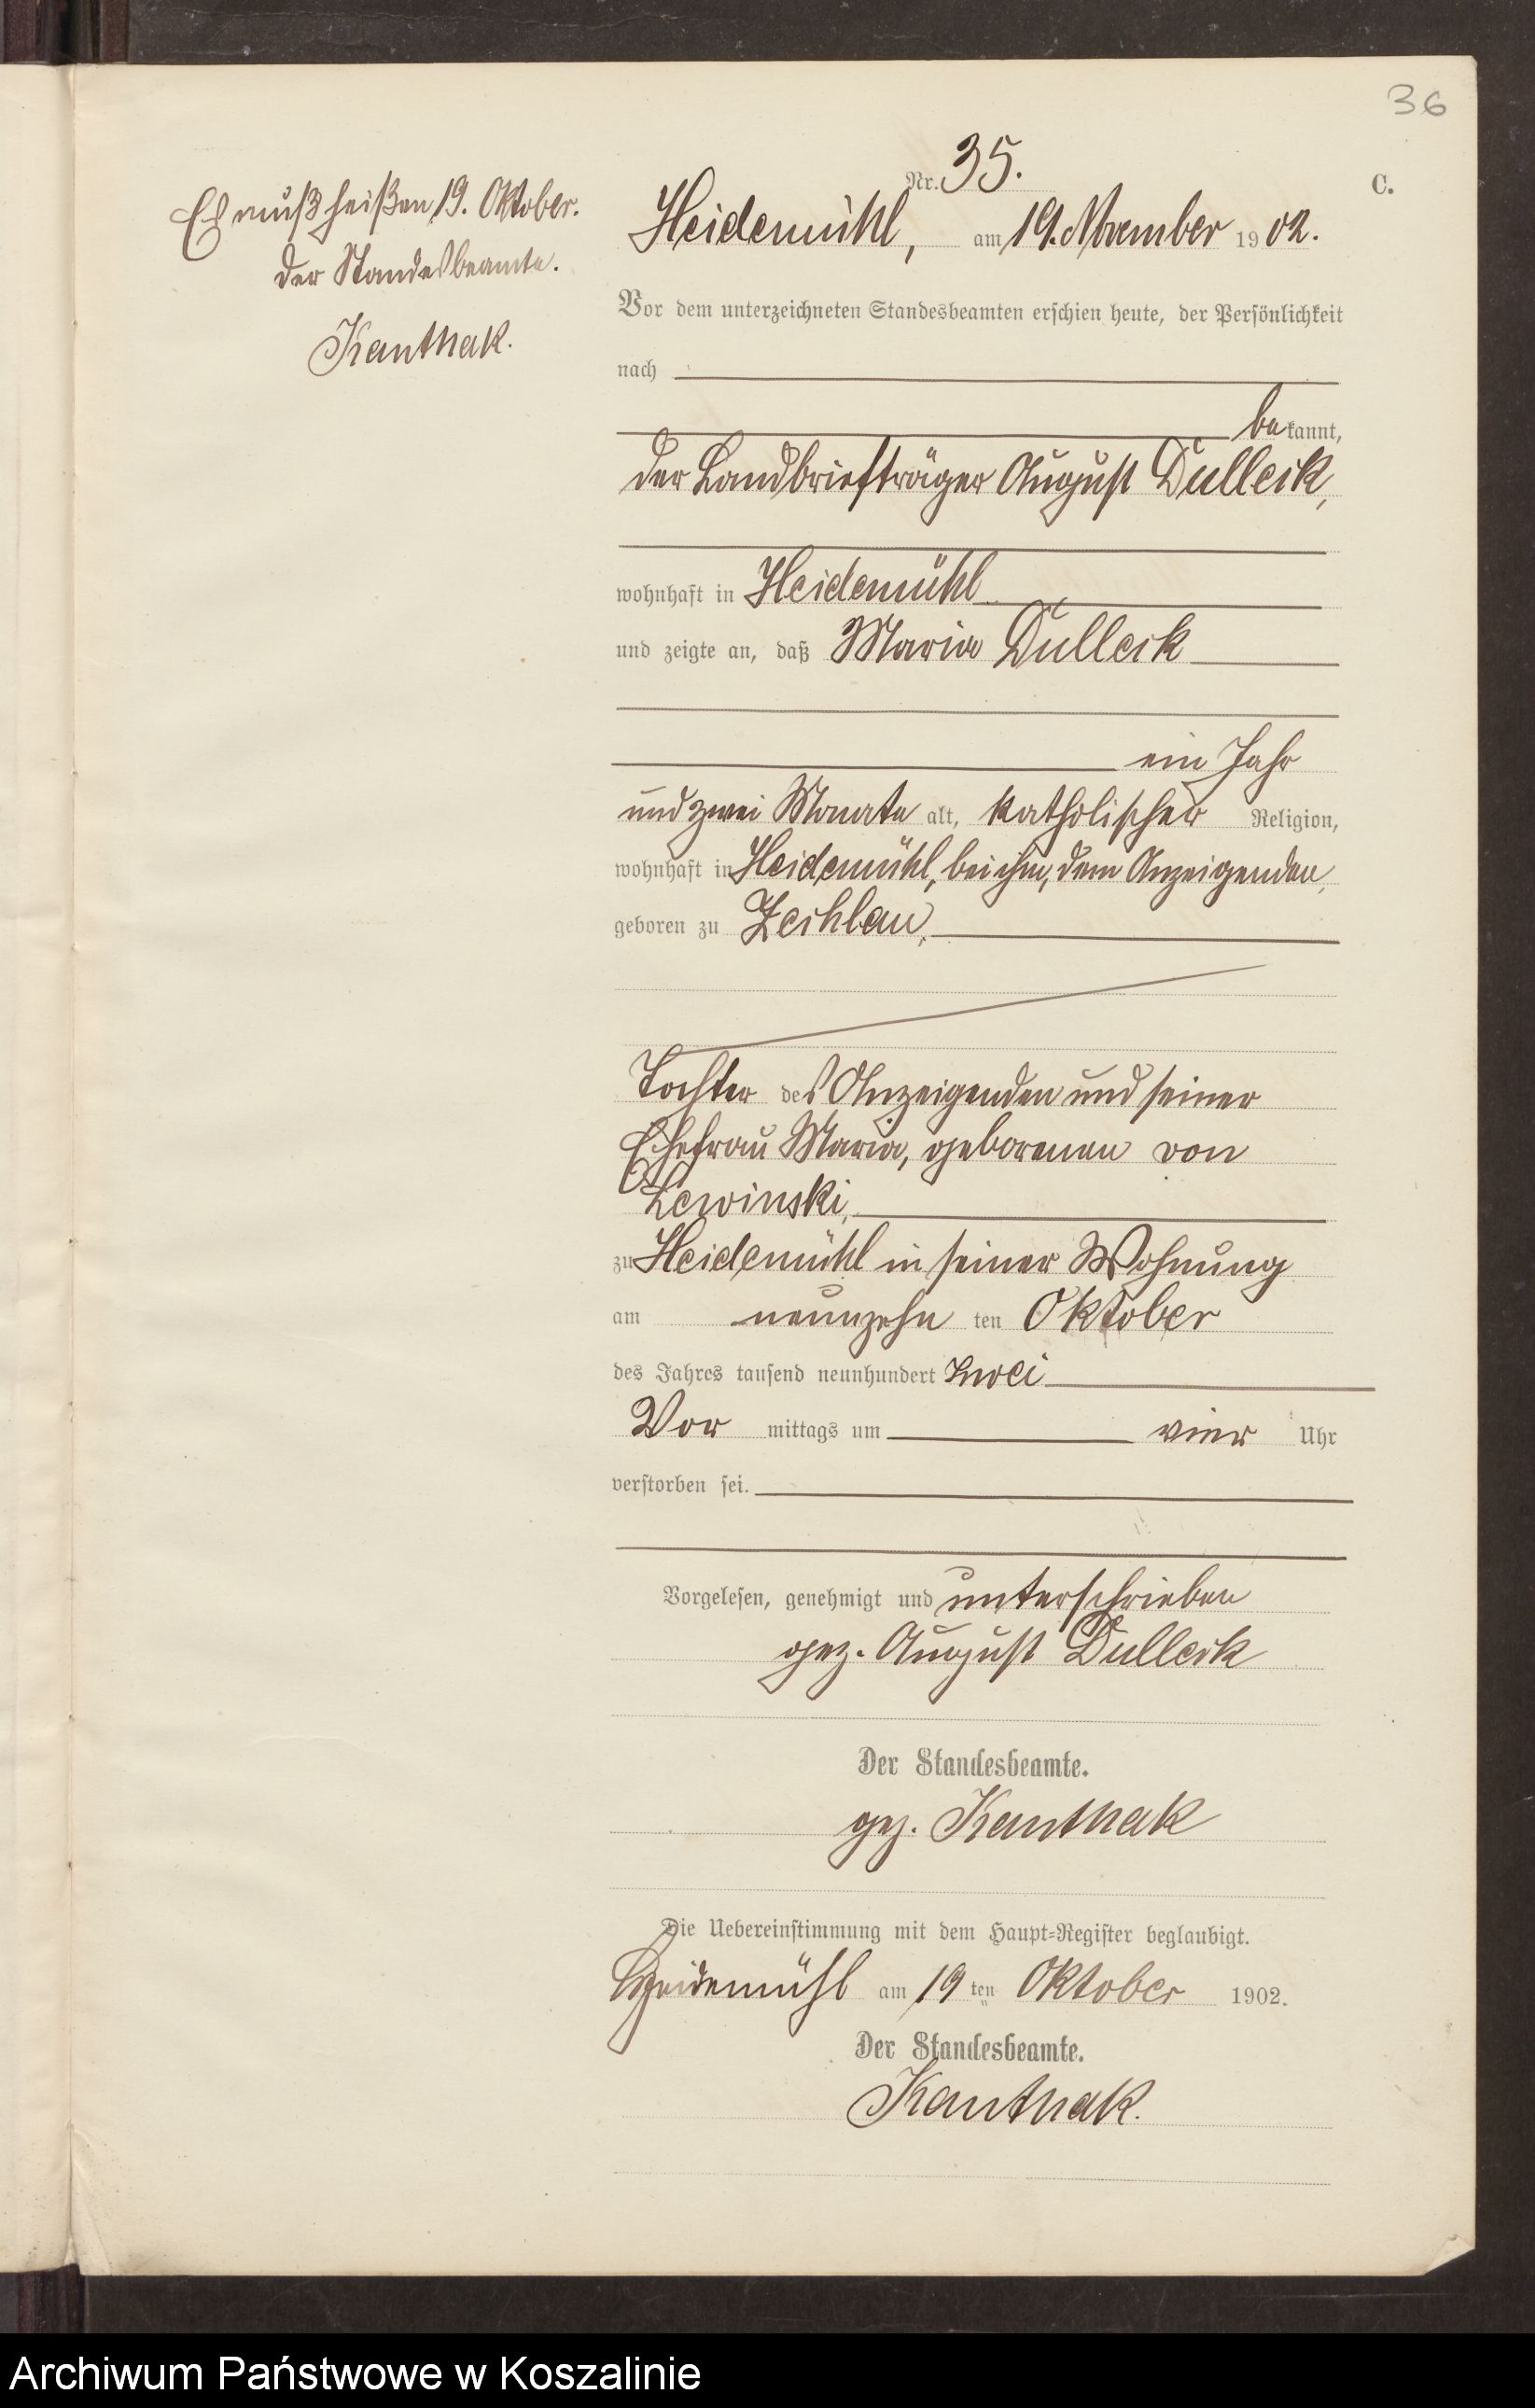 36
C.
Nr. 35.
Es muß heißen 19. Oktober.
Der Standesbeamte.
Kanthak.
Heidemühl, am 19. November 1902.
Vor dem unterzeichneten Standesbeamten erschien heute, der Persönlichkeit
nach
bekannt,
der Landbriefträger August Dulleck,
wohnhaft in Heidemühl
und zeigte an, daß Maria Dulleck
ein Jahr
und zwei Monate alt, katholischer Religion,
wohnhaft in Heidemühl, bei ihm, dem Anzeigenden,
geboren zu Zechlau,
Tochter des Anzeigenden und seiner
Ehefrau Maria, geborenen von
Lewinski,
zu Heidemühl in seiner Wohnung
am neunzehn ten Oktober
des Jahres tausend neunhundert zwei
Vor mittags um vier Uhr
verstorben sei.
Vorgelesen, genehmigt und unterschrieben
gez. August Dulleck
Der Standesbeamte.
gez. Kanthak
Die Uebereinstimmung mit dem Haupt-Register beglaubigt.
Heidemühl am 19 ten Oktober 1902.
Der Standesbeamte.
Kanthak.
Archiwum Państwowe w Koszalinie